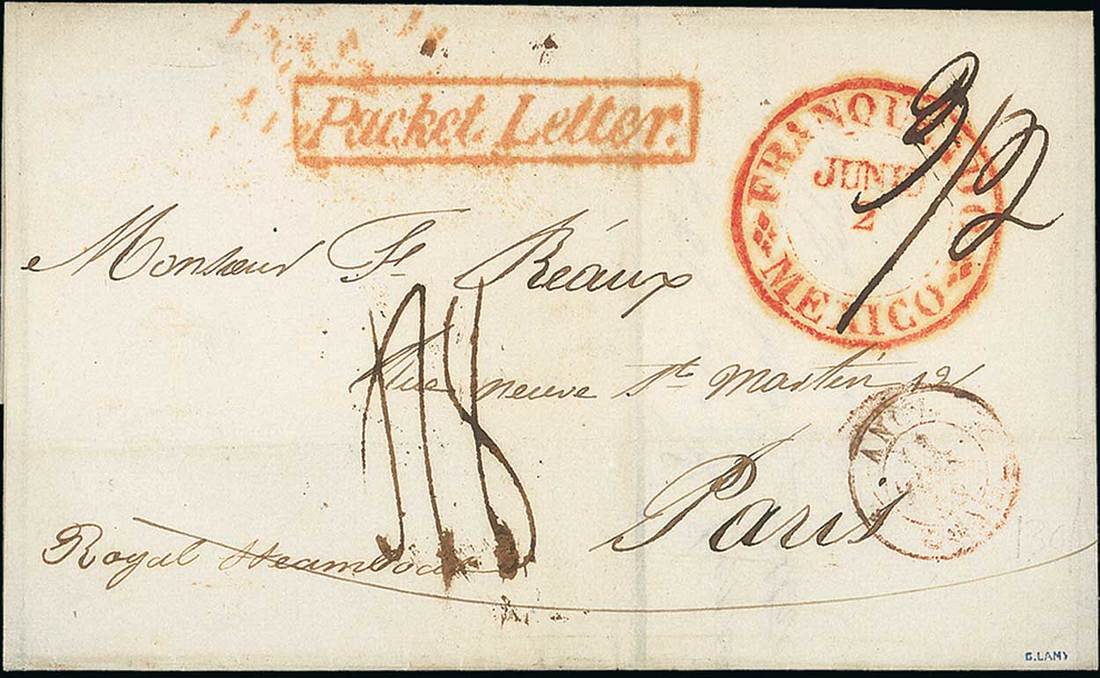 Packet Letter.
FRANQUEADO
JUNIO
2
MEXICO
3/2
Monsieur Ft Réaux
Rue neuve St Martin 12
Paris
Royal Steamboat
ANGL.
G.LAMY